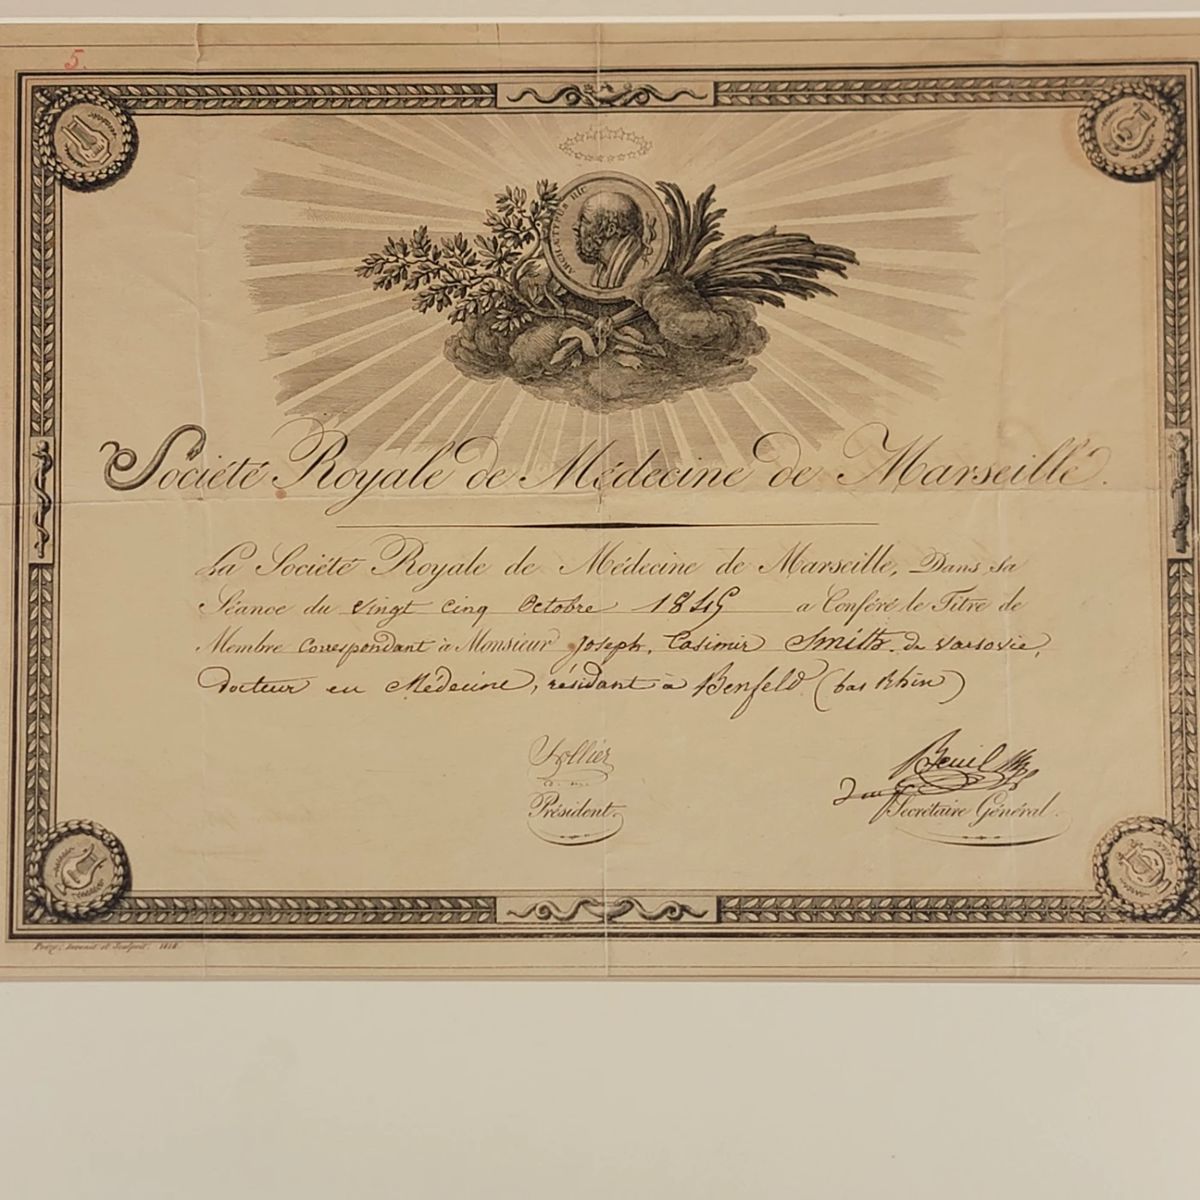 5.
Société Royale de Médecine de Marseille.
La Société Royale de Médecine de Marseille, Dans sa
Séance du vingt cinq Octobre 1845 a Conféré le Titre de
Membre correspondant à Monsieur Joseph, Casimir Smith. de varsovie,
Docteur en Médecine, résidant à Benfeld (bas Rhin)
Président.
Secrétaire Général.
Invenit et Sculpsit. 1818.